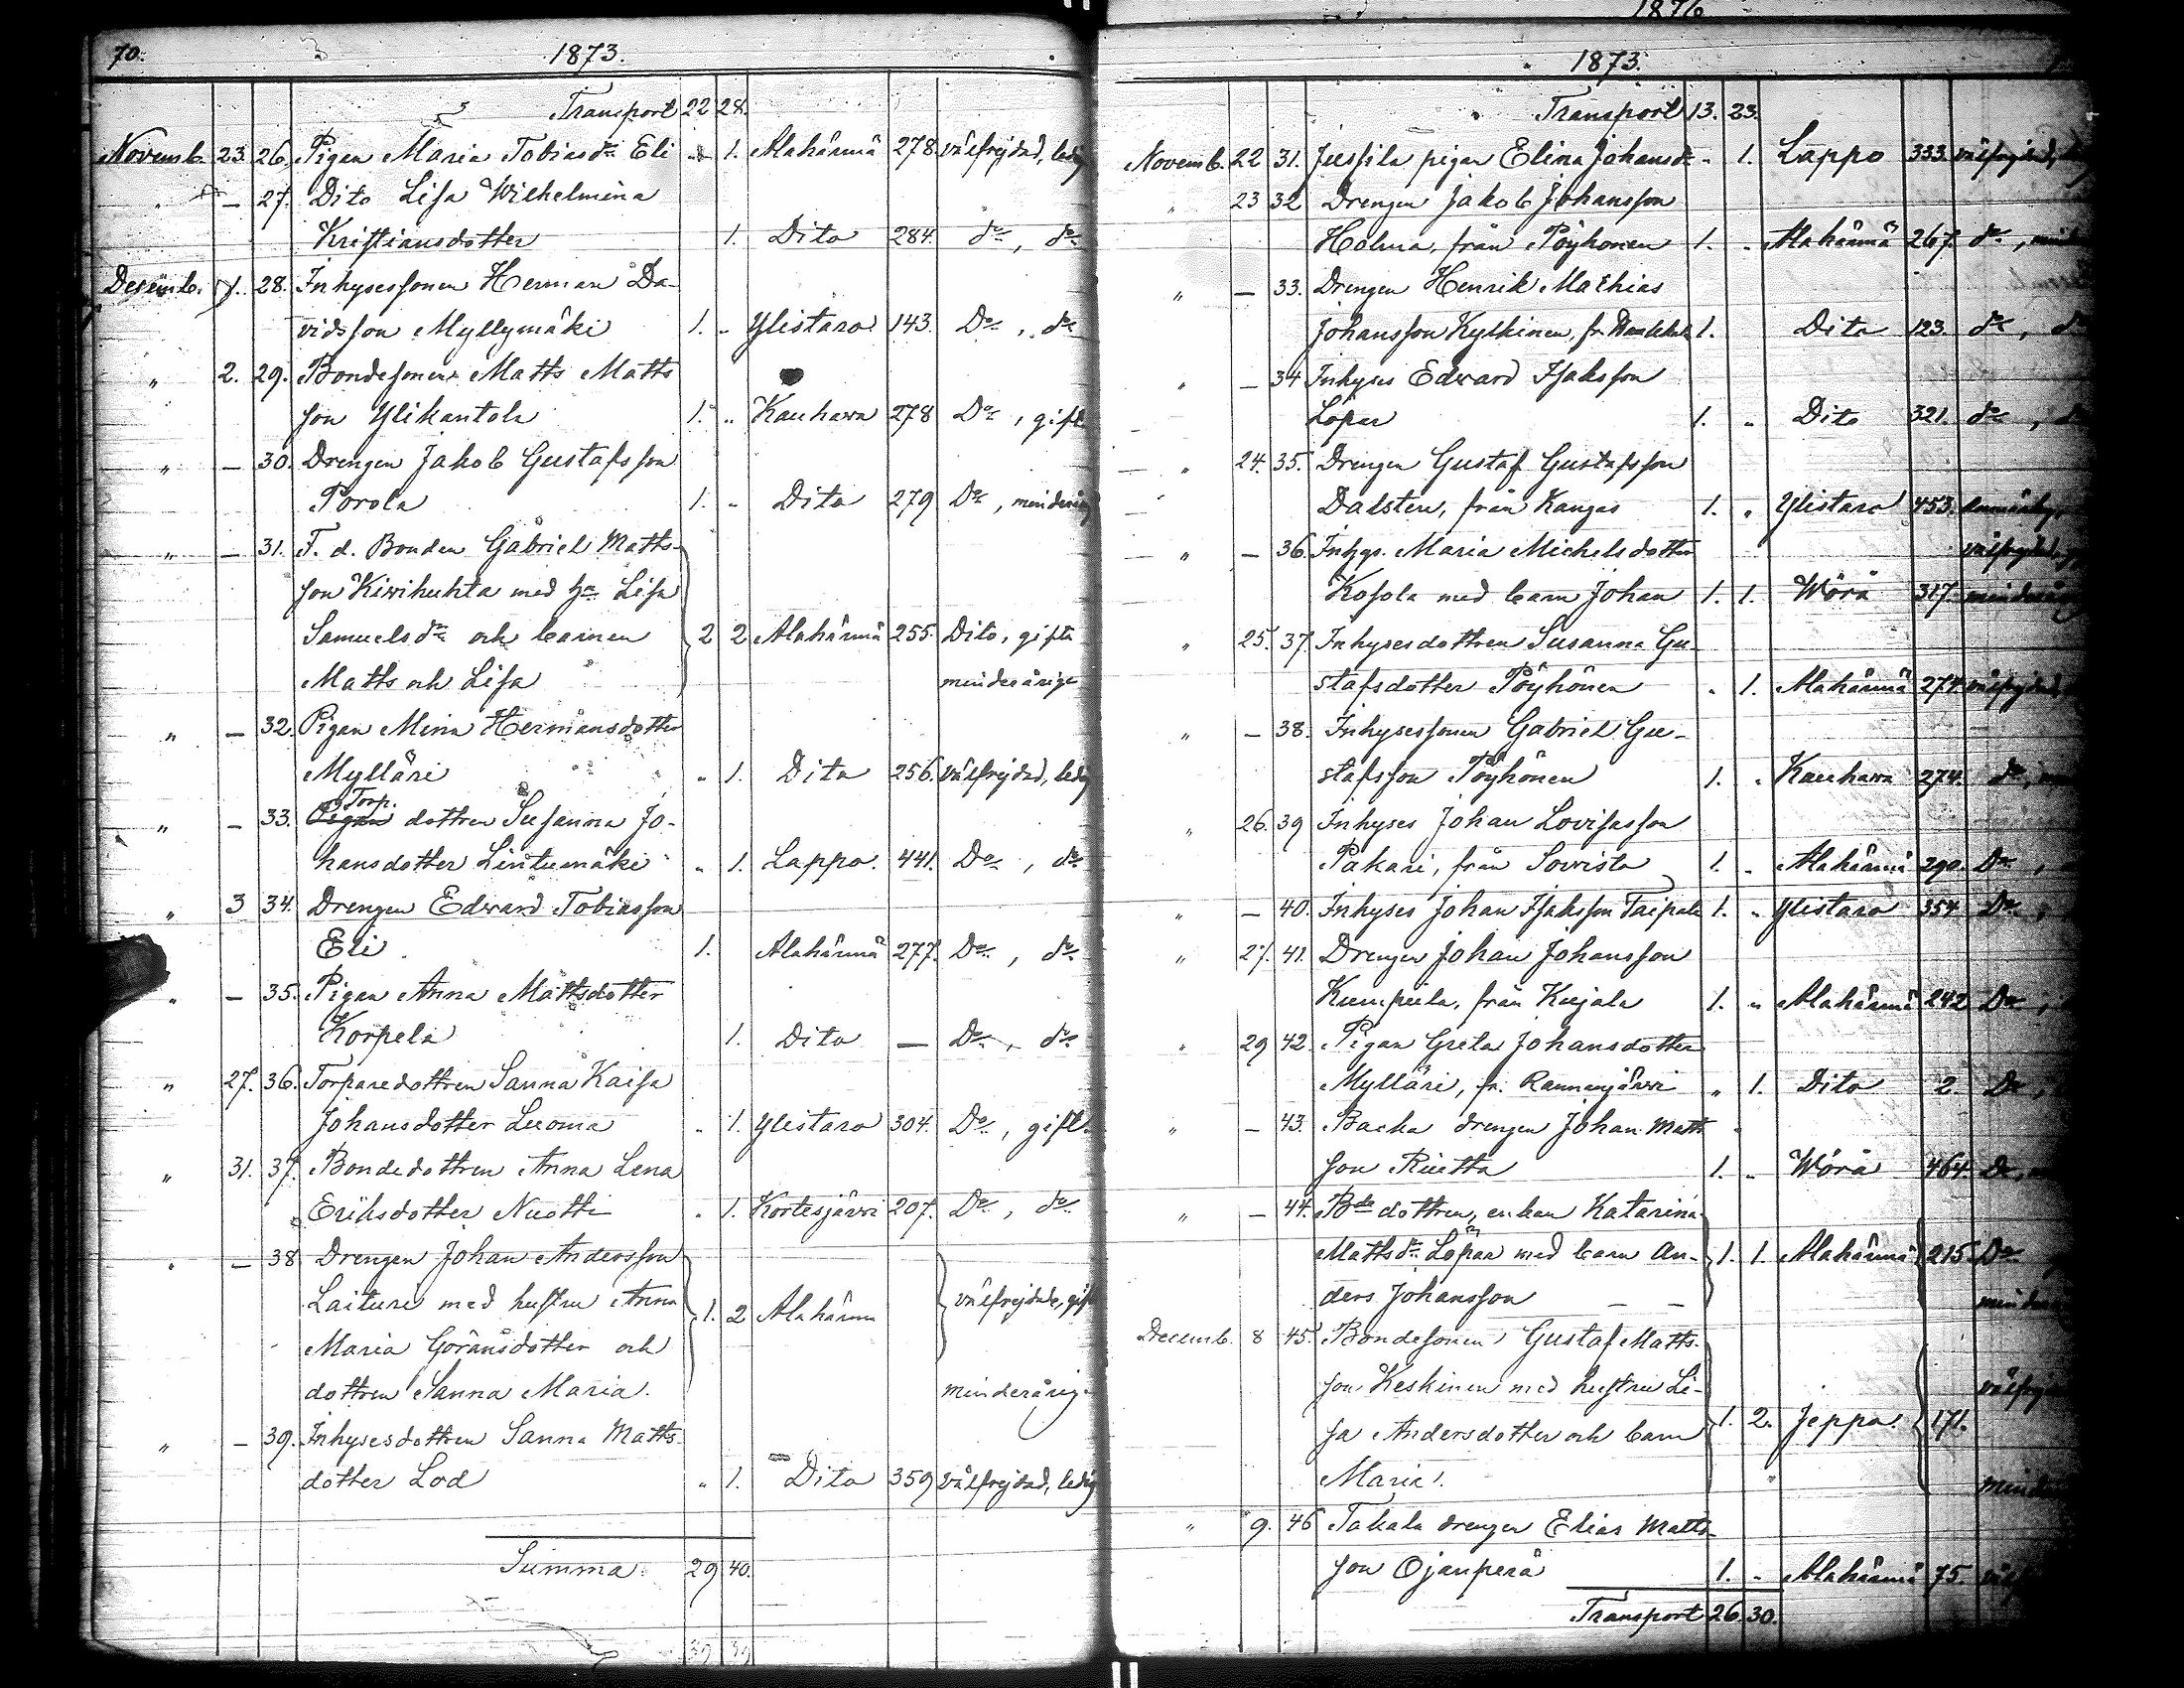 70.
1873.
Transport 22 28.
Novemb. 23. 26. Pigan Maria Tobiasdr Eli " 1. Alahärmä 278 välfrejdad, ledig
" — 27. Dito Lisa Wilhelmina
Kristiansdotter 1. Dito 284. do, do
Decemb. 1. 28. Inhysessonen Herman Da-
vidsson Myllymäki 1. " Ylistaro 143. Do, do
" 2. 29. Bondesonen Matts Matts
son Ylikantola 1. " Kauhava 278 Do, gift
" — 30. Drengen Jakob Gustafsson
Porola 1. " Dito 279 Do, minderårig
" — 31. F. d. Bonden Gabriel Matts-
son Kiwihuhta med h. Lisa
Samuelsdr och barnen 2 2 Alahärmä 255. Dito, gifta
Matts och Lisa minderåriga
" — 32. Pigan Mina Hermansdotter
Mylläri " 1. Dito 256. välfrejdad, ledig
Torp.
" — 33. Pigan dottren Susanna Jo-
hansdotter Lintumäki " 1. Lappo. 441. Do, do
" 3 34. Drengen Edward Tobiasson
Eli 1. Alahärmä 277. Do, do
" — 35. Pigan Anna Mattsdotter
Korpela 1. Dito — Do, do
" 27. 36. Torparedottren Sanna Kaisa
Johansdotter Luoma " 1. Ylistaro 304. Do, gift.
" 31. 37. Bondedottren Anna Lena
Eriksdotter Nuotti " 1. Kortesjärvi 207. Do, do
" — 38 Drengen Johan Andersson
Laituri med hustru Anna 1. 2 Alahärm välfrejdade, gifta
Maria Göransdotter och
dottren Sanna Maria. minderårig
" — 39. Inhysesdottren Sanna Matts-
dotter Lod " 1. Dito 359 välfrejdad, ledig
Summa 29 40.
39 39
1876
1873.
Transport 13. 23.
Novemb. 22 31. Jussila pigan Elina Johansdr " 1. Lappo 333. välfrejdad,
" 23 32 Drengen Jakob Johansson
Holma, från Pöyhönen 1. " Alahärmä 267. do,
" — 33. Drengen Henrik Mathias
Johansson Kyskinen, fr. 1. Dito 123. do,
" — 34 Inhyses Edward Isaksson
Löpar 1. " Dito 321. do,
" 24. 35. Drengen Gustaf Gustafsson
Dalsten, från Kangas 1. " Ylistaro 453.
" — 36. Inhys. Maria Michelsdotter
Kosola med barn Johan 1. 1. Wörå 317. minderårig
" 25. 37. Inhysesdottren Susanna Gu-
stafsdotter Pöyhönen " 1. Alahärmä 274 välfrejdad,
" — 38. Inhysessonen Gabriel Gu-
stafsson Pöyhönen 1. " Kauhava 274. do,
" 26. 39 Inhyses Johan Lovisasson
Pakari, från Sorvista 1. " Alahärmä 290. Do,
" — 40. Inhyses Johan Isaksson Taipale 1. " Ylistaro 354 Do
" 27. 41. Drengen Johan Johansson
Kumpula, från Kujala 1. " Alahärmä 242 Do,
" 29 42. Pigan Greta Johansdotter
Mylläri, fr. Rannanjärvi " 1. Dito 2. Do,
" — 43. Backa drengen Johan Matts
son Riutta 1. " Wörå 464. Do,
" — 44. Bde dottren, enkan Katarina
Mattsdr Löpar med barn An- 1. 1. Alahärmä 215. Do
ders Johansson — —
Decemb. 8 45. Bondesonen Gustaf Matts-
son Keskinen med hustru Li-
sa Andersdotter och barn 1. 2. Jeppo. 171.
Maria.
" 9. 46 Takala drengen Elias Matts-
son Ojanperä 1. " Alahärmä 75.
Transport 26. 30.